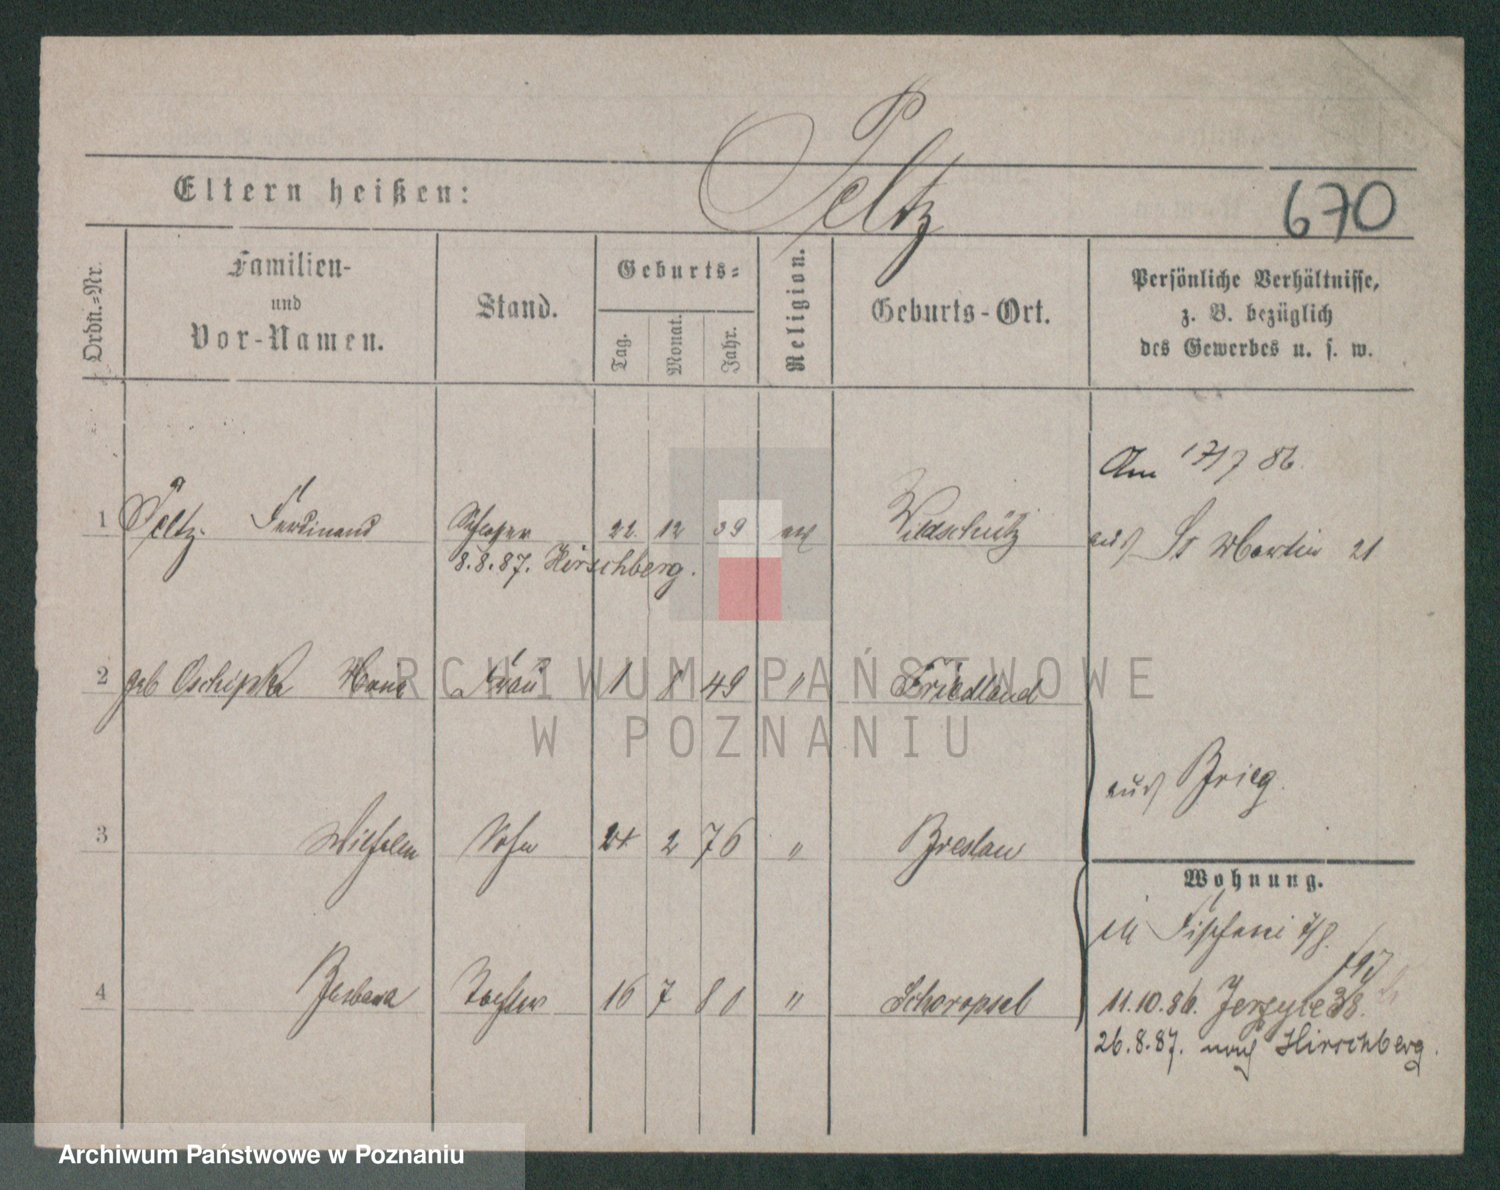 Peltz
Eltern heißen:
670
Ordn.-Nr.
Familien-
und
Vor-Namen.
Stand.
Geburts-
Tag.
Monat.
Jahr.
Religion.
Geburts-Ort.
Persönliche Verhältnisse,
z. B. bezüglich
des Gewerbes u. s. w.
Am 17/7 86.
1 Peltz. Ferdinand Schlosser 22. 12 39 ev Wildschütz aus St Martin 21
8.8.87. Hirschberg.
2 geb Oschipka Frau 1 8 49 " Friedland
aus Brieg.
3 Wilhelm Sohn 24 2 76 " Breslau
Wohnung.
in Fischerei 7/8.
4 Barbara Tochter 16 7 80 "
11.10.86. Jerzyce 38.
26.8.87. nach Hirschberg.
ARCHIWUM PAŃSTWOWE
W POZNANIU
Archiwum Państwowe w Poznaniu